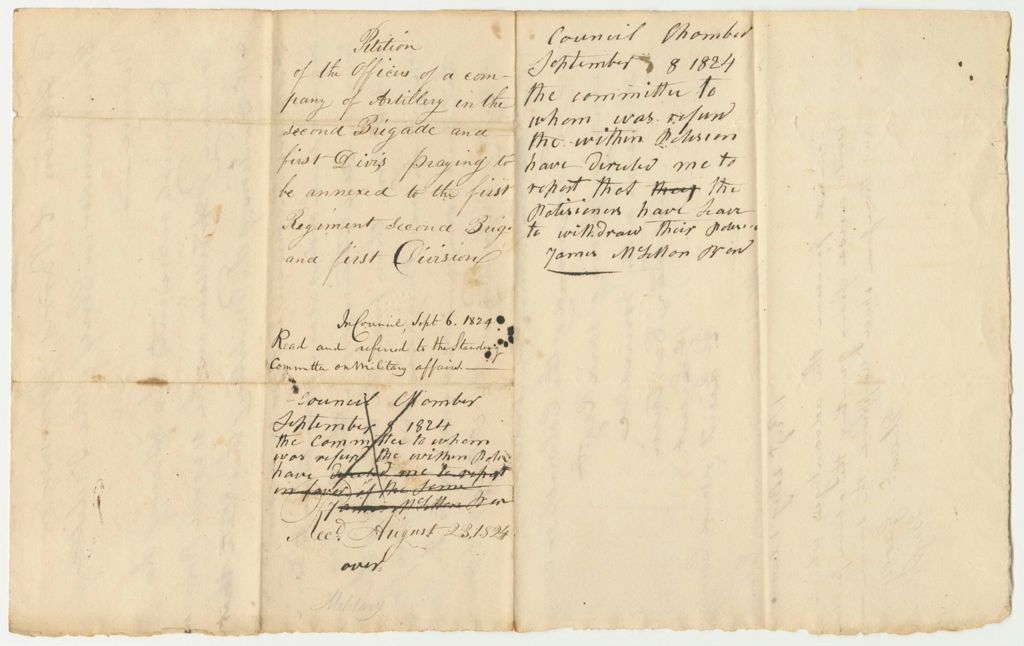 Petition
of the Officers of a com-
pany of Artillery in the
second Brigade and
first Divis praying to
be annexed to the first
Regiment second Brig.
and first Division
In Council, Sept 6. 1824.
Read and referred to the Standing
Committee on Military affairs.
Council Chamber
September 8 1824
the Committee to whom
was refured the within
have directed me to report
in favor of the same
Recd. August 23, 1824
over.
Military
Council Chamber
September 8 1824
the committee to
whom was refured
the within Petision
have Directed me to
report that they the
Petisioners have leave
to withdraw their
James